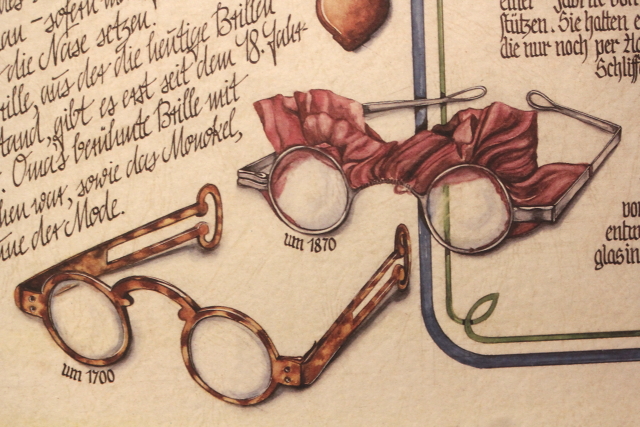 an – sofern m
die Nase setzen.
rille, aus der die heutige Brillen
tand, gibt es erst seit dem 18. Jahr-
Omas berühmte Brille mit
hen war, sowie das Monokel,
une der Mode.
um 1870
um 1700
einer
stützen. Sie hatten e
die nur noch per
Schliff
vor
entw
glasin